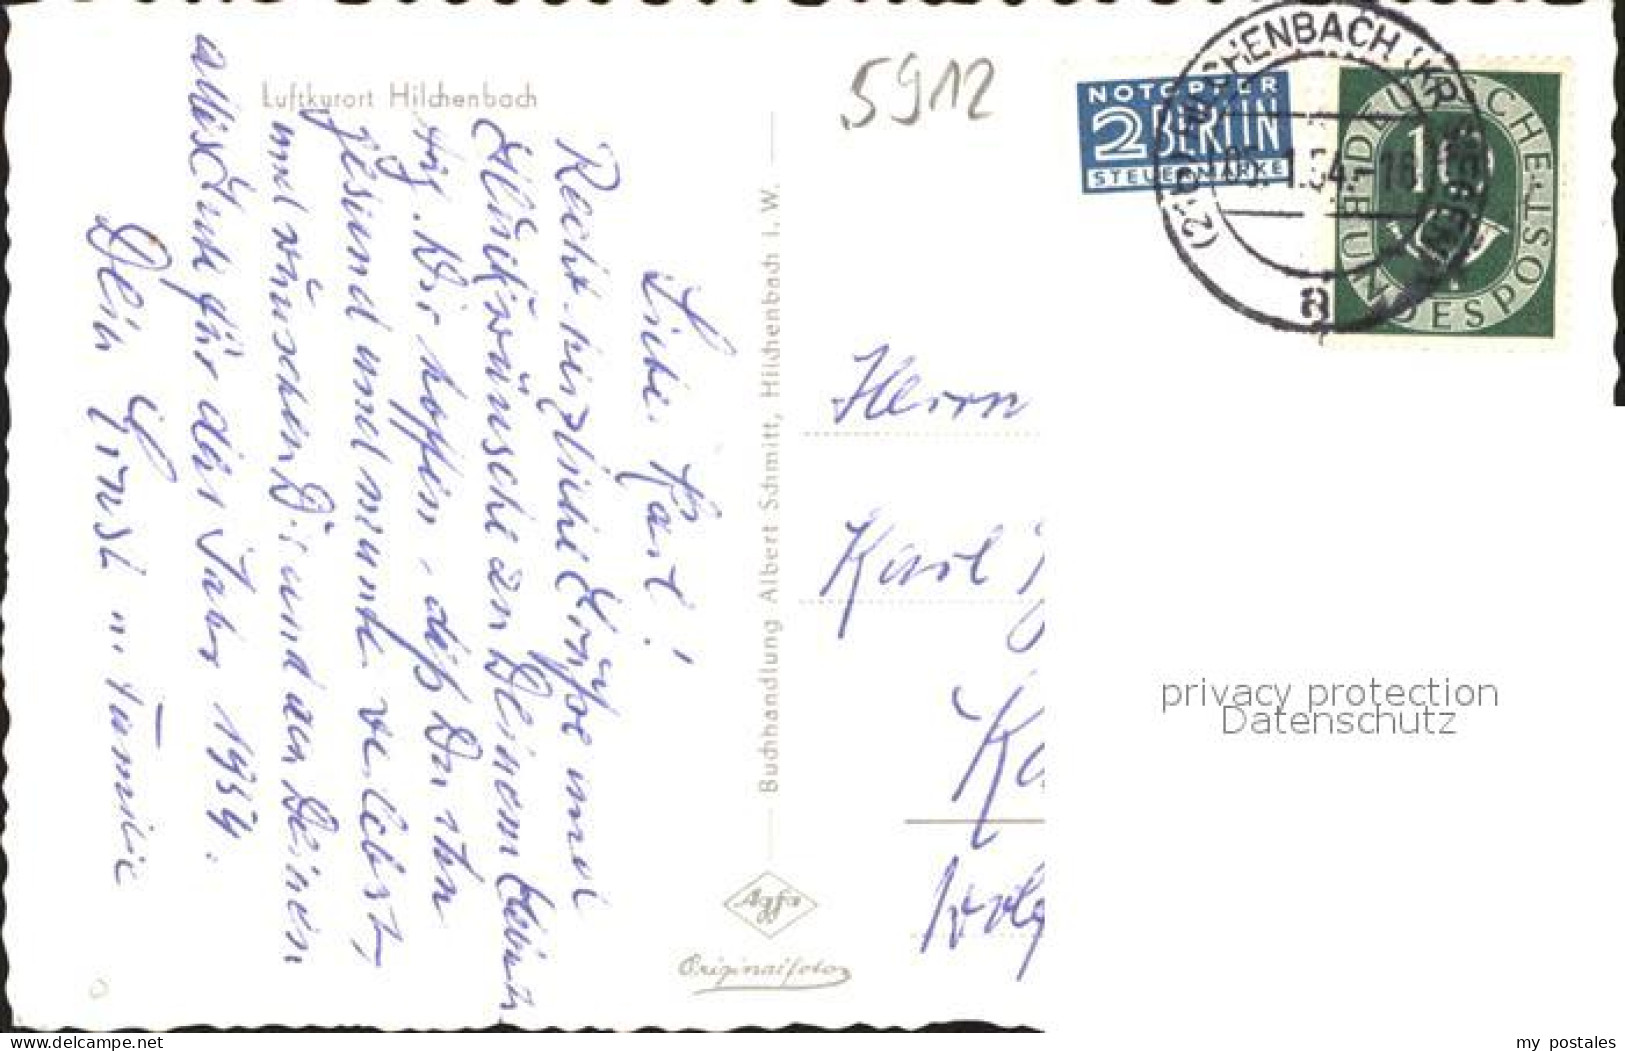 Luftkurort Hilchenbach
5912
NOTOPFER
2 BERLIN
STEUERMARKE
DEUTSCHE BUNDESPOST
10
HILCHENBACH (KR. SIEGEN)
a
Liebe. Karl!
Recht herzliche Grüße und
Glückwünsche zu Deinem Geburts-
tag. Wir hoffen, daß Du ihn
gesund und munter verlebst,
und wünschen Dir und den Deinen
alles Gute für das Jahr 1954.
Dein Ernst u. Familie
Buchhandlung Albert Schmitt, Hilchenbach i. W.
Agfa
Originalfoto
Herrn
Karl
privacy protection
Datenschutz
www.delcampe.net
my_postales